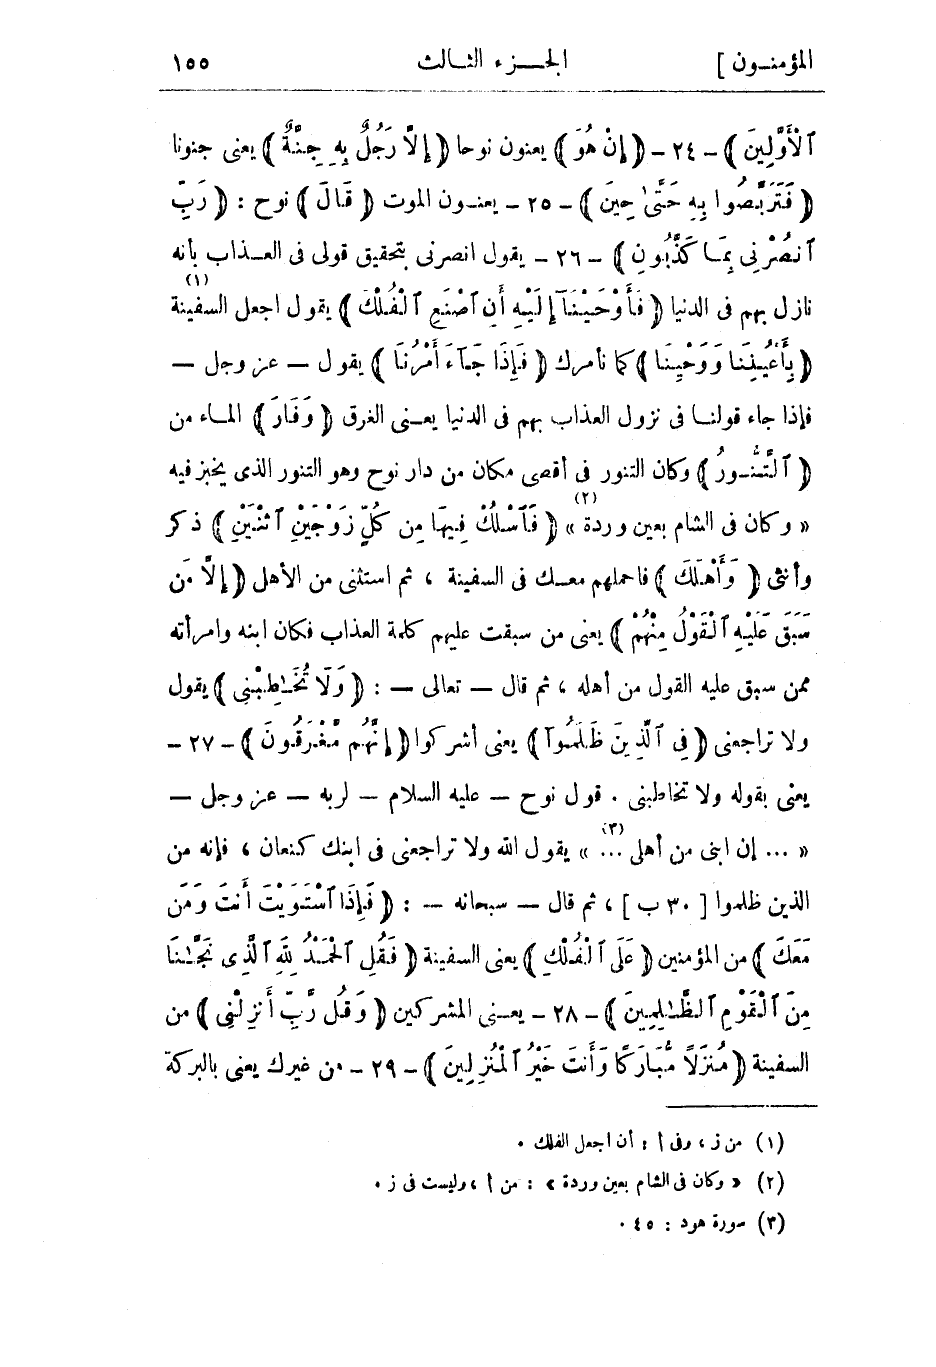 المؤمنـون ] الجـــزء الثـالث ١٥٥
ٱلْأَوَّلِينَ ﴾ - ٢٤ - ﴿ إِنْ هُوَ ﴾ يعنون نوحا ﴿ إِلَّا رَجُلٌ بِهِ جِنَّةٌ ﴾ يعنى جنونا
﴿ فَتَرَبَّصُوا بِهِ حَتَّىٰ حِينَ ﴾ - ٢٥ - يعنـون الموت ﴿ قَالَ ﴾ نوح : ﴿ رَبِّ
ٱنصُرْنِى بِمَا كَذَّبُونِ ﴾ - ٢٦ - يقول انصرنى بتحقيق قولى فى العـذاب بأنه
نازل بهم فى الدنيا ﴿ فَأَوْحَيْنَآ إِلَيْهِ أَنِ ٱصْنَعِ ٱلْفُلْكَ ﴾ يقول اجعل السفينة (١)
﴿ بِأَعْيُنِنَا وَوَحْيِنَا ﴾ كما نأمرك ﴿ فَإِذَا جَآءَ أَمْرُنَا ﴾ يقول — عز وجل —
فإذا جاء قولنـا فى نزول العذاب بهم فى الدنيا يعـنى الغرق ﴿ وَفَارَ ﴾ المـاء من
﴿ ٱلتَّنُّـورُ ﴾ وكان التنور فى أقصى مكان من دار نوح وهو التنور الذى يخبز فيه
« وكان فى الشام بعين وردة » (٢) ﴿ فَٱسْلُكْ فِيهَا مِن كُلٍّ زَوْجَيْنِ ٱثْنَيْنِ ﴾ ذكر
وأنثى ﴿ وَأَهْلَكَ ﴾ فاحملهم معـك فى السفينة ، ثم استثنى من الأهل ﴿ إِلَّا مَن
سَبَقَ عَلَيْهِ ٱلْقَوْلُ مِنْهُمْ ﴾ يعنى من سبقت عليهم كلمة العذاب فكان ابنه وامرأته
ممن سبق عليه القول من أهله ، ثم قال — تعالى — : ﴿ وَلَا تُخَـٰطِبْنِى ﴾ يقول
ولا تراجعنى ﴿ فِى ٱلَّذِينَ ظَلَمُوٓا ﴾ يعنى أشركوا ﴿ إِنَّهُم مُّغْرَقُونَ ﴾ - ٢٧ -
يعنى بقوله ولا تخاطبنى . قول نوح — عليه السلام — لربه — عز وجل —
« ... إن ابنى من أهلى ... » (٣) يقول الله ولا تراجعنى فى ابنك كنعان ، فإنه من
الذين ظلموا [ ٣٠ ب ] ، ثم قال — سبحانه — : ﴿ فَإِذَا ٱسْتَوَيْتَ أَنتَ وَمَن
مَعَكَ ﴾ من المؤمنين ﴿ عَلَى ٱلْفُلْكِ ﴾ يعنى السفينة ﴿ فَقُلِ ٱلْحَمْـدُ لِلَّهِ ٱلَّذِى نَجَّـٰنَا
مِنَ ٱلْقَوْمِ ٱلظَّـٰلِمِينَ ﴾ - ٢٨ - يعـنى المشركين ﴿ وَقُل رَّبِّ أَنزِلْنِى ﴾ من
السفينة ﴿ مُنزَلًا مُّبَارَكًا وَأَنتَ خَيْرُ ٱلْمُنزِلِينَ ﴾ - ٢٩ - من غيرك يعنى بالبركة
(١) من ز ، وفى أ : أن اجعل الفلك .
(٢) « وكان فى الشام بعين وردة » : من أ ، وليست فى ز .
(٣) سورة هود : ٤٥ .